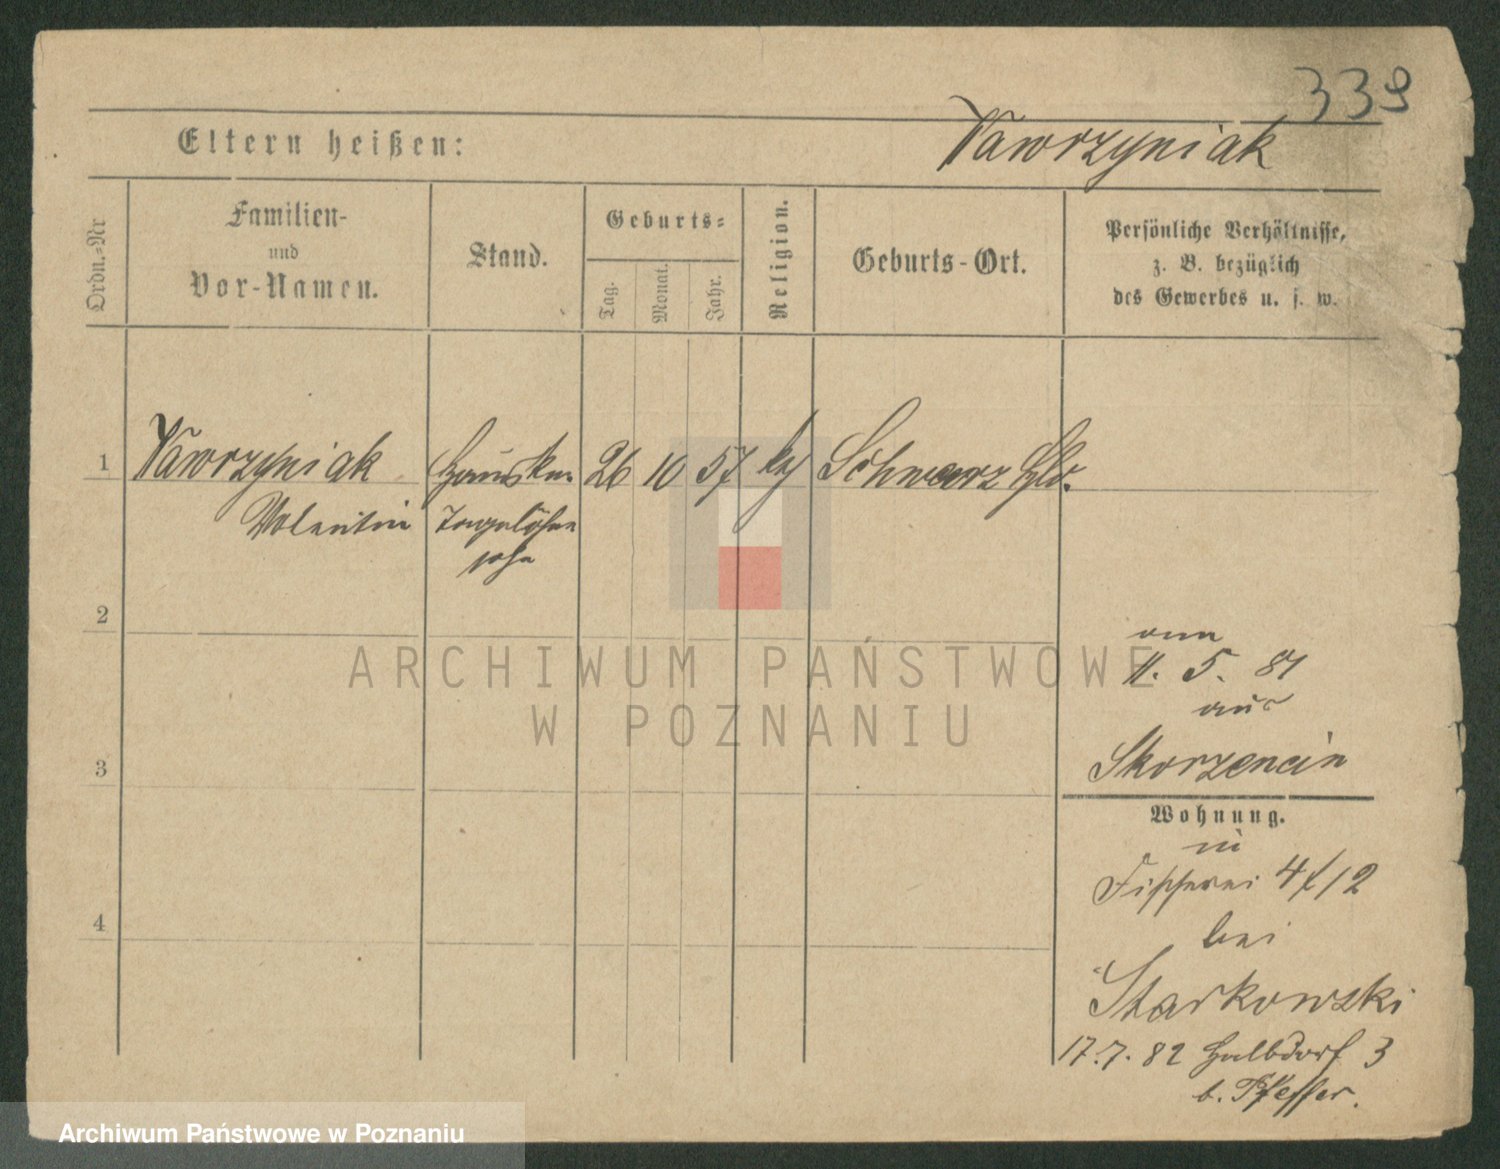 339
Eltern heißen:
Wawrzyniak
Ordn.=Nr
Familien-
und
Vor-Namen.
Stand.
Geburts=
Tag.
Monat.
Jahr.
Religion.
Geburts-Ort.
Persönliche Verhältnisse,
z. B. bezüglich
des Gewerbes u. s. w.
1
Wawrzyniak
Valentin
Tagelöhner
sohn
26 10 57
Schwarz Hld.
2
3
4
am
11. 5. 81
aus
Skorzencin
Wohnung.
in
Fischerei 4/12
bei
Starkowski
17.7.82 Halbdorf 3
b. Pfeffer.
ARCHIWUM PAŃSTWOWE
W POZNANIU
Archiwum Państwowe w Poznaniu